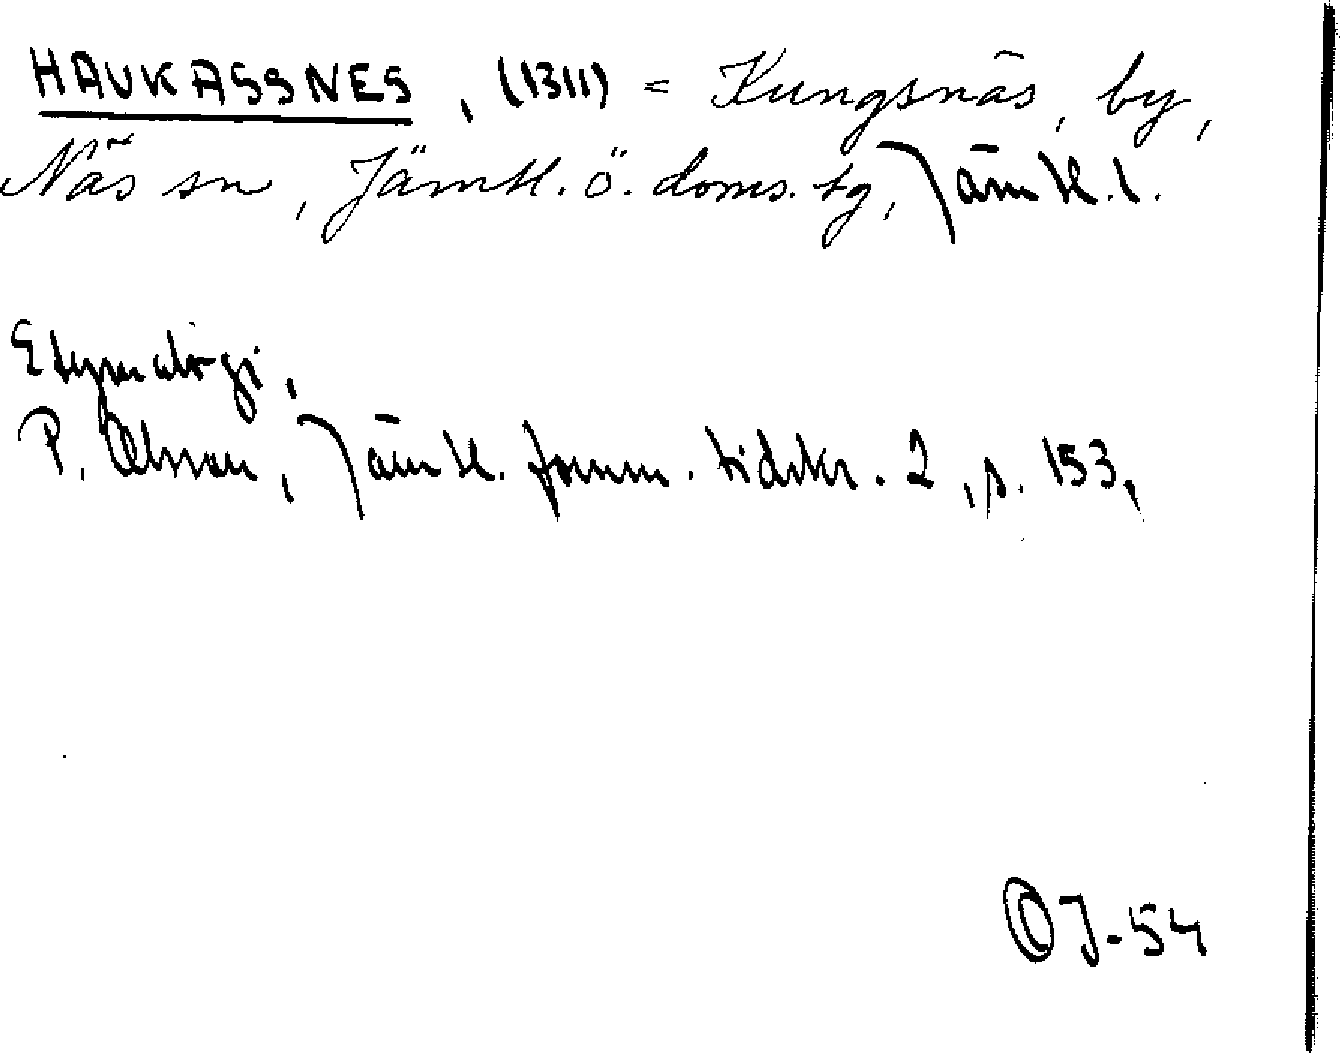 HAVKASSNES, (1311) = Kungsnäs, by,
Näs sn, Jämtl. ö. doms. tg, Jämtl. l.
Etymologi,
P. Olsson, Jämtl. fornm. tidskr. 2, s. 153,
OJ-54